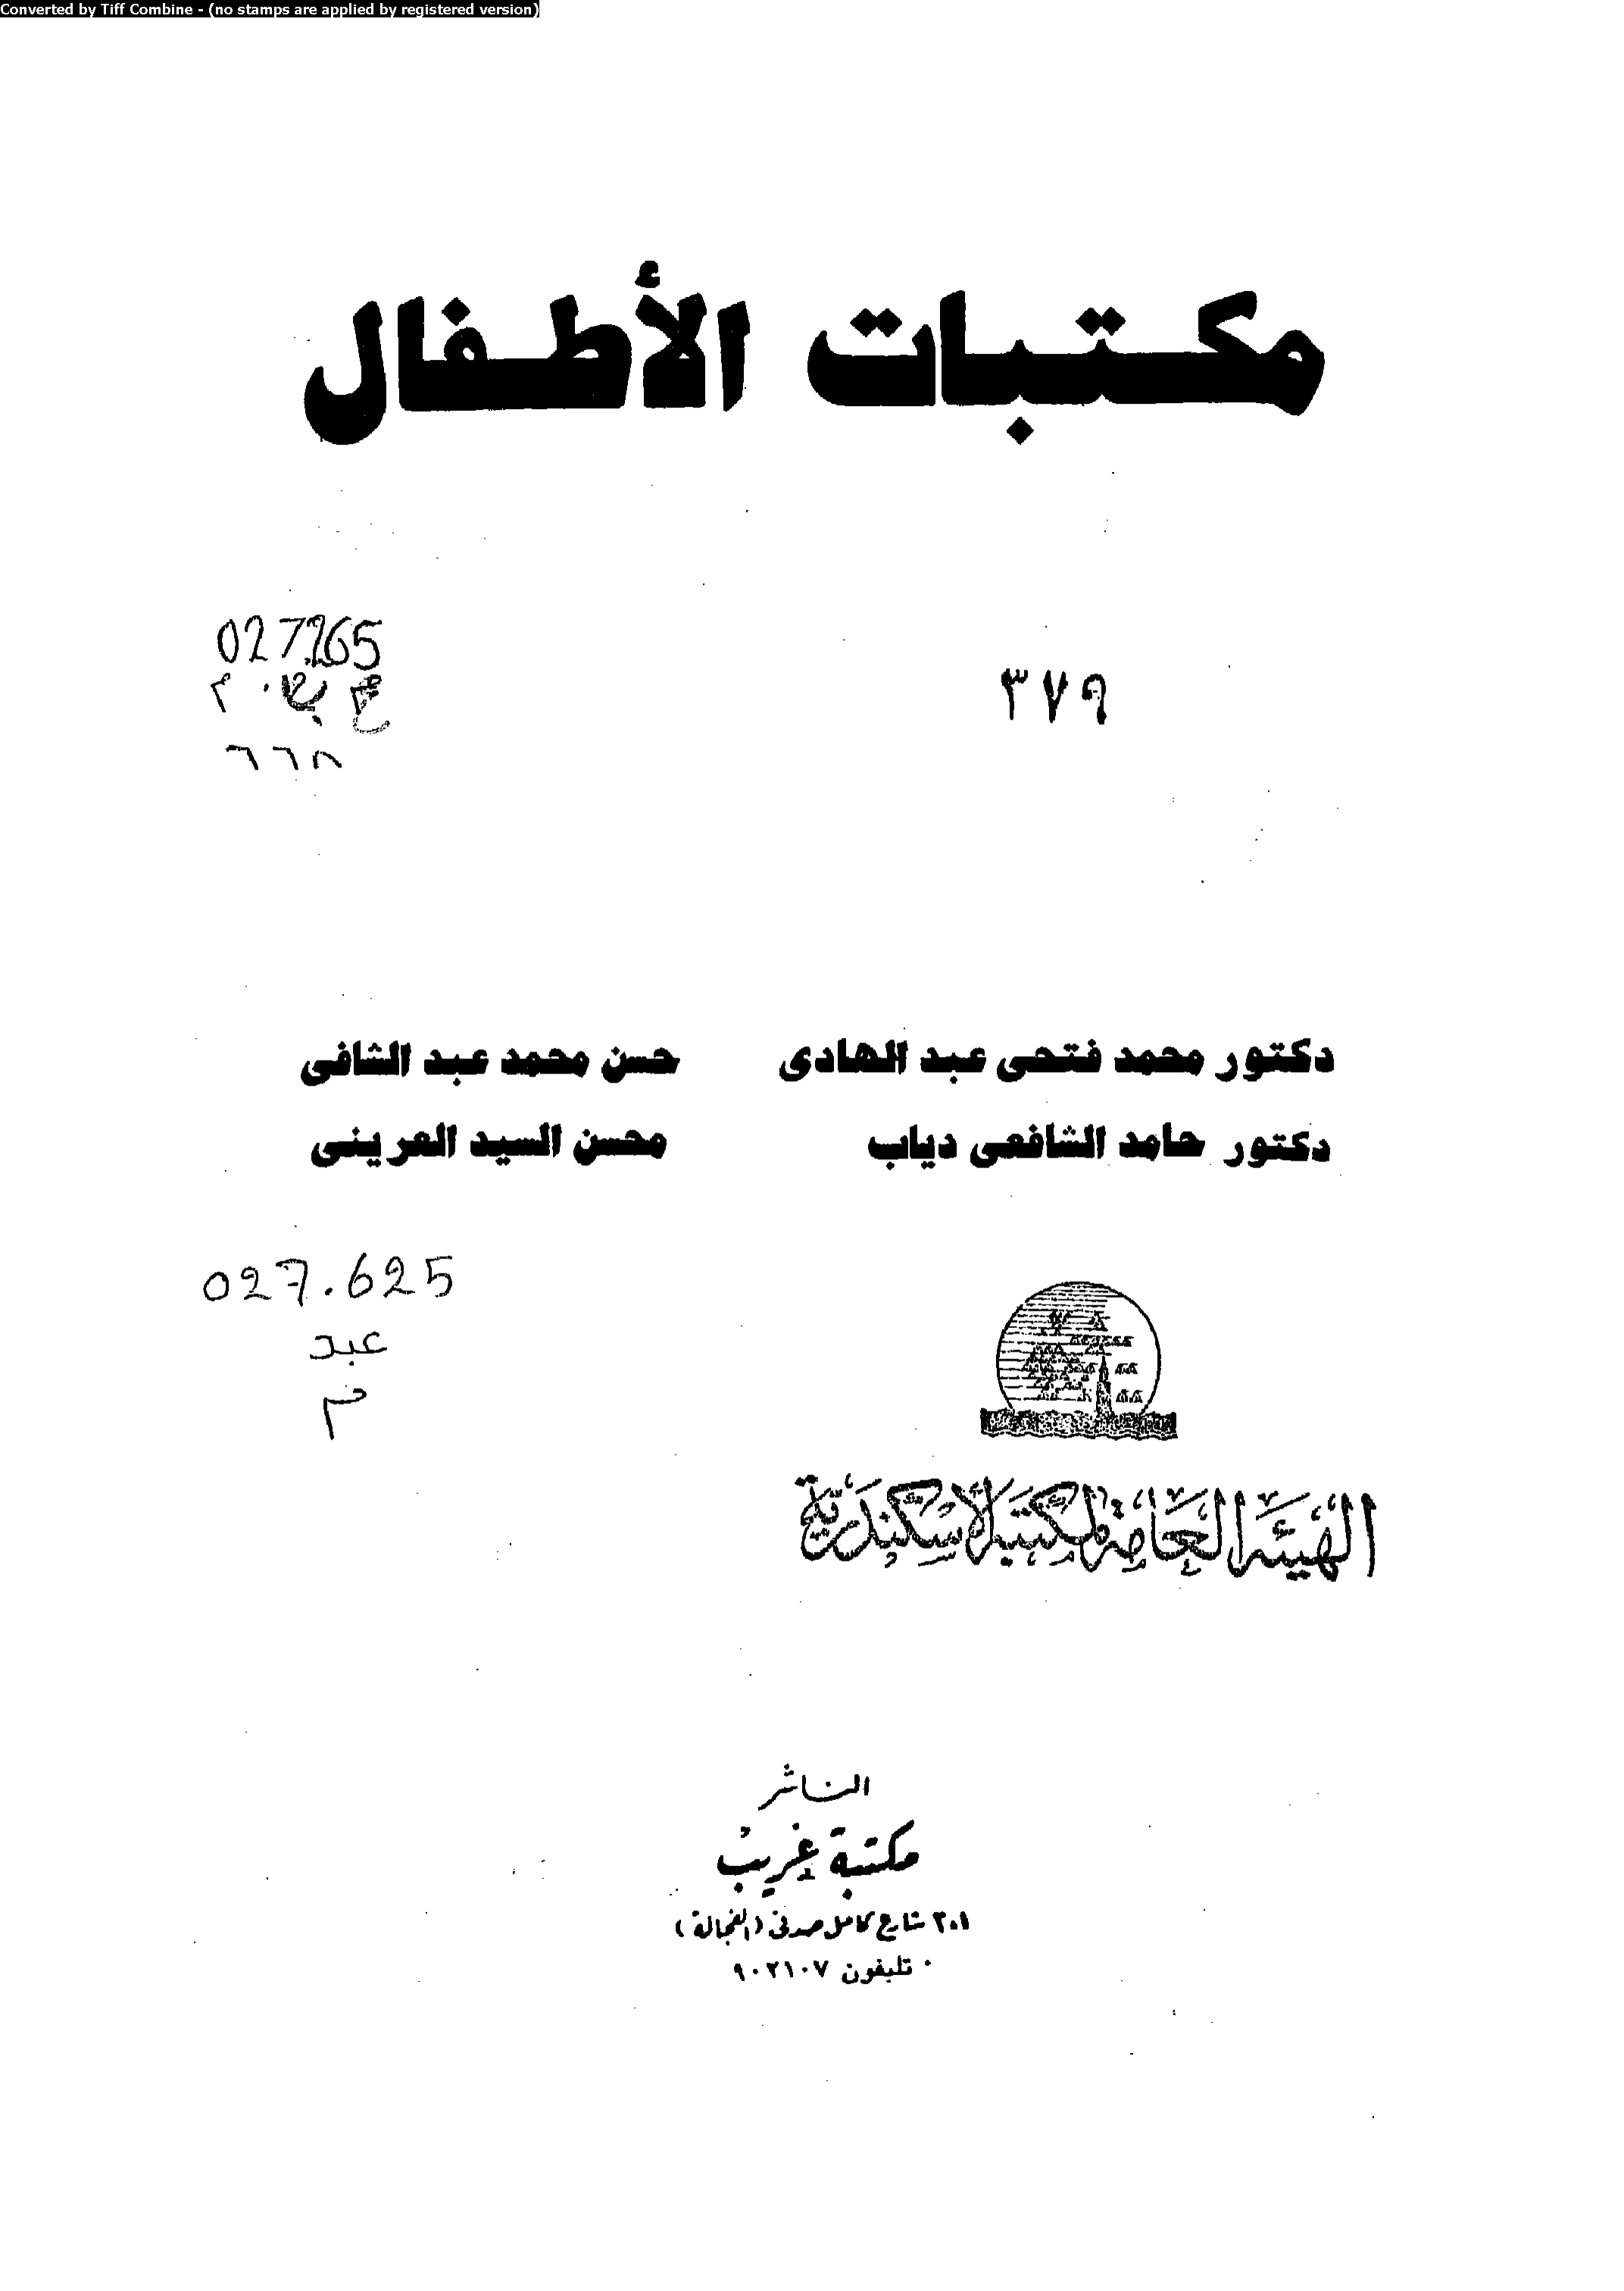 Converted by Tiff Combine - (no stamps are applied by registered version)
مكتبات الأطفال
٣٧٩
دكتور محمد فتحى عبد الهادى
حسن محمد عبد الشافى
دكتور حامد الشافعى دياب
محسن السيد العرينى
027.625
عبد
م
الهيئة العامة لمكتبة الأسكندرية
الناشر
مكتبة غريب
٣٠١ شارع كامل صدقى (الفجالة)
تليفون ٩٠٢١٠٧